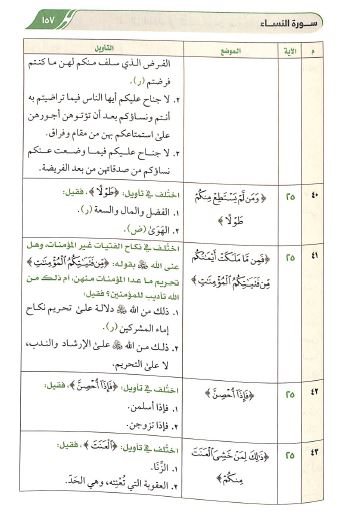 سورة النساء
١٥٧
م
الآية
الموضع
التأويل
الفرض الذي سلف منكم لهن ما كنتم
فرضتم (ر).
٢. لا جناح عليكم أيها الناس فيما تراضيتم به
أنتم ونساؤكم بعد أن تؤتوهن أجورهن
على استمتاعكم بهن من مقام وفراق.
٣. لا جناح عليكم فيما وضعت عنكم
نساؤكم من صدقاتهن من بعد الفريضة.
٤٠
٢٥
﴿وَمَن لَّمْ يَسْتَطِعْ مِنكُمْ
طَوْلًا﴾
اختُلف في تأويل: ﴿طَوْلًا﴾، فقيل:
١. الفضل والمال والسعة (ر).
٢. الهَوَىٰ (ض).
٤١
٢٥
﴿فَمِن مَّا مَلَكَتْ أَيْمَٰنُكُم
مِّن فَتَيَٰتِكُمُ الْمُؤْمِنَٰتِ﴾
اختُلف في نكاح الفتيات غير المؤمنات، وهل
عنى الله ﷻ بقوله: ﴿مِّن فَتَيَٰتِكُمُ الْمُؤْمِنَٰتِ﴾
تحريم ما عدا المؤمنات منهن، أم ذلك من
الله تأديب للمؤمنين؟ فقيل:
١. ذلك من الله ﷻ دلالة على تحريم نكاح
إماء المشركين (ر).
٢. ذلك من الله ﷻ على الإرشاد والندب،
لا على التحريم.
٤٢
٢٥
﴿فَإِذَا أُحْصِنَّ﴾
اختُلف في تأويل: ﴿فَإِذَا أُحْصِنَّ﴾، فقيل:
١. فإذا أسلمن.
٢. فإذا تزوجن.
٤٣
٢٥
﴿ذَٰلِكَ لِمَنْ خَشِيَ الْعَنَتَ
مِنكُمْ﴾
اختُلف في تأويل: ﴿الْعَنَتَ﴾، فقيل:
١. الزِّنا.
٢. العقوبة التي تُعْنِته، وهي الحَدّ.